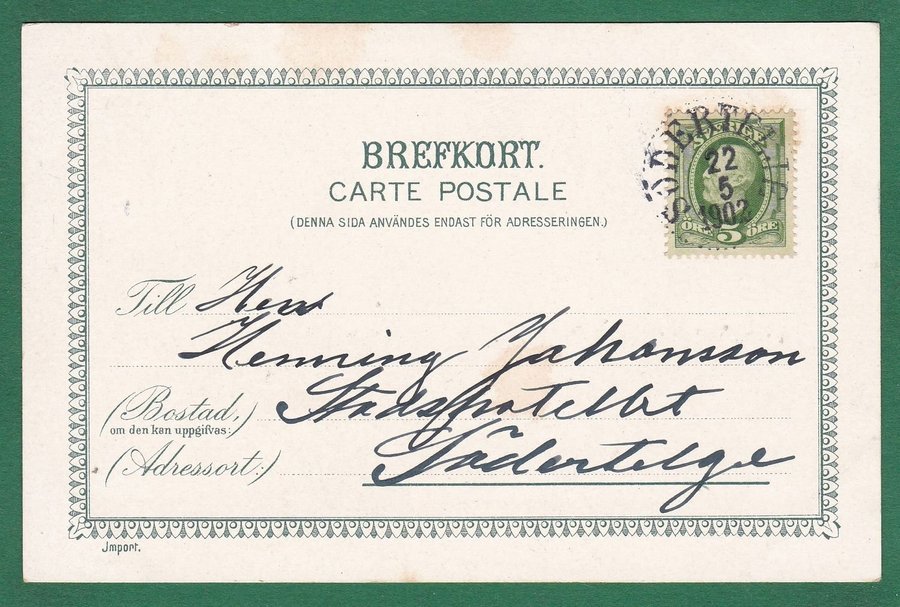 BREFKORT.
CARTE POSTALE
(DENNA SIDA ANVÄNDES ENDAST FÖR ADRESSERINGEN.)
SÖDERTELJE
22
5
1902
SVERIGE
ÖRE 5 ÖRE
Till Herr
Henning Johansson
(Bostad,
om den kan uppgifvas:)
Stadshotellet
(Adressort:)
Södertelge
Import.